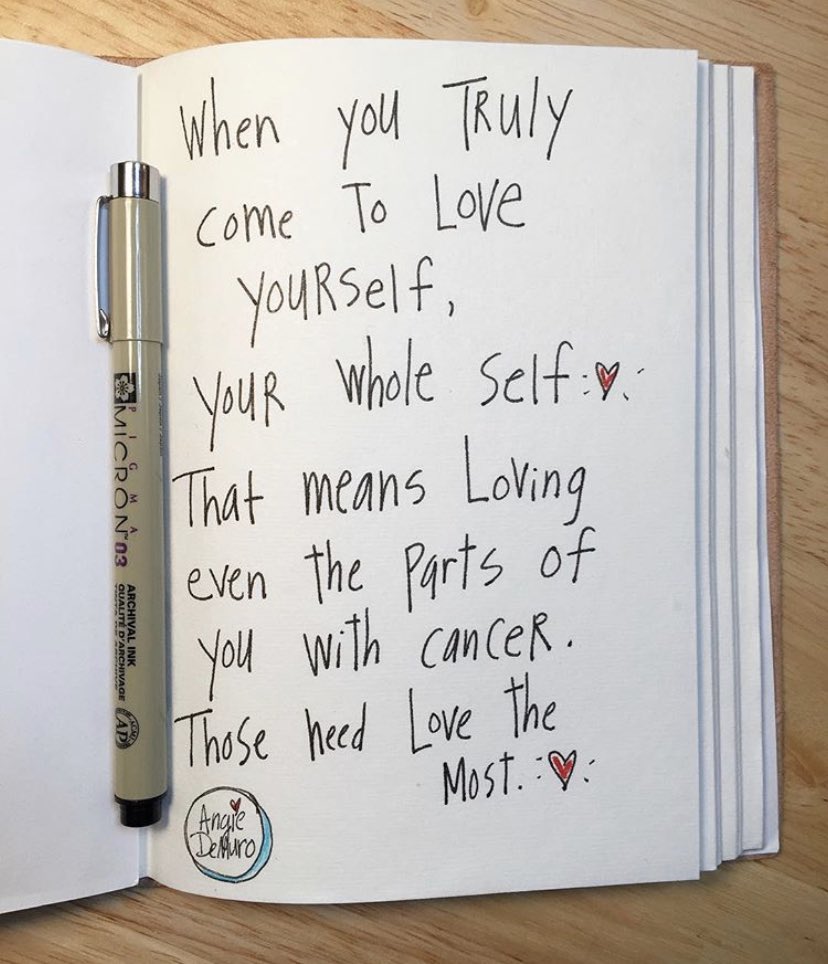 When you TRuly
come To Love
yourself,
your whole self
That means Loving
even the parts of
you with cancer.
Those need Love the
Most.
Angie
DeMuro
PIGMA
MICRON™ 03
ARCHIVAL INK
QUALITÉ D'ARCHIVAGE
AP